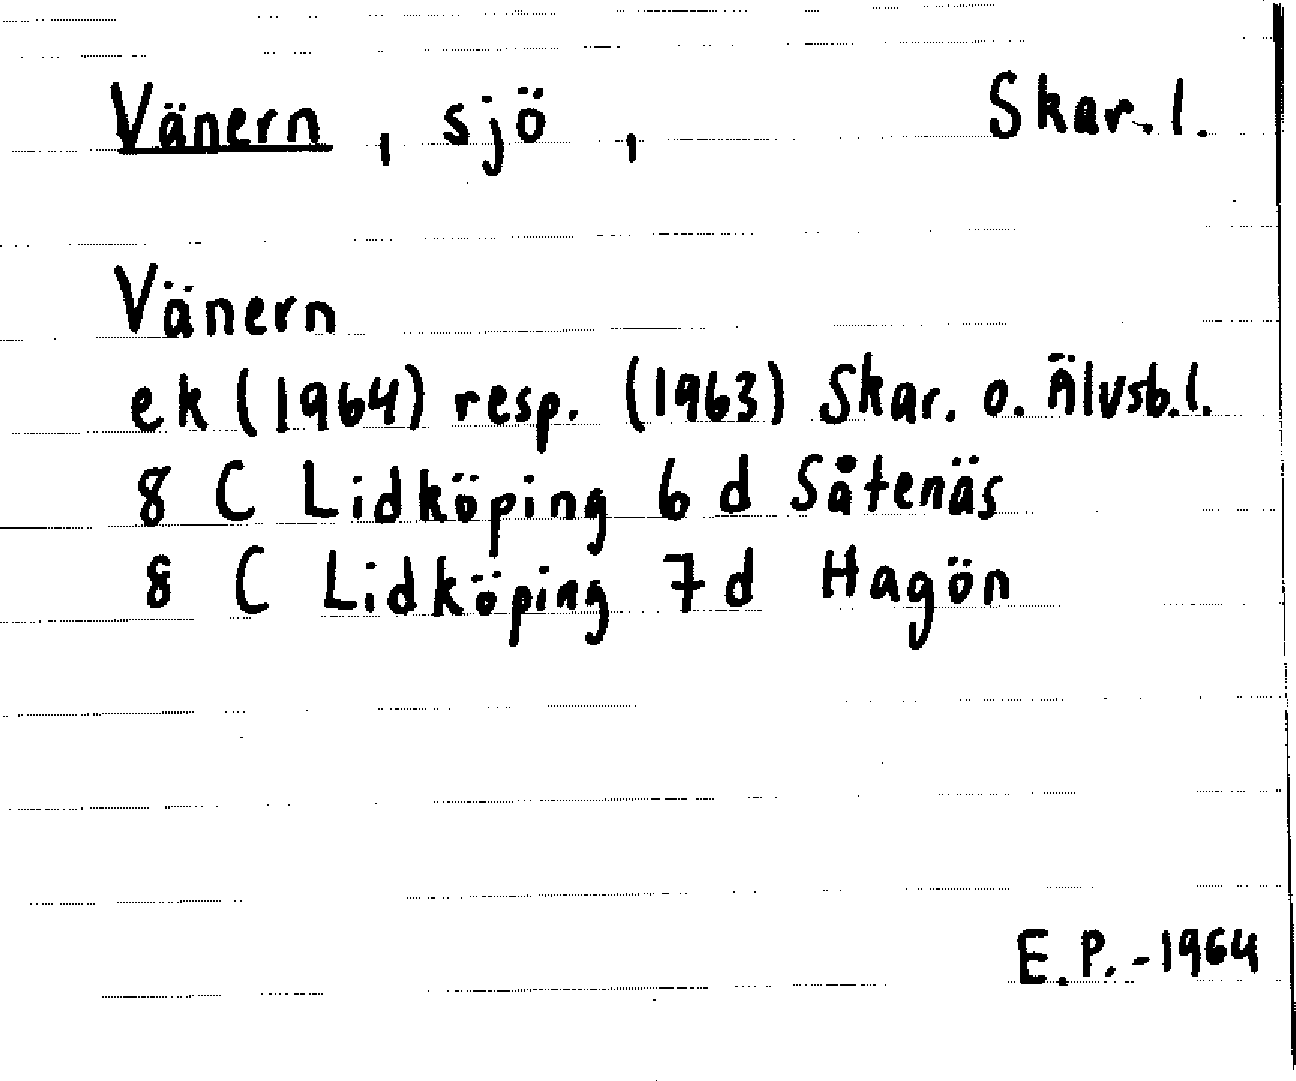 Vänern, sjö, Skar. l.
Vänern
ek (1964) resp. (1963) Skar. o. Älvsb. l.
8 C Lidköping 6 d Såtenäs
8 C Lidköping 7 d Hagön
E.P. -1964